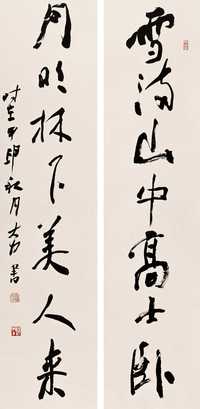 雪満山中高士卧
月明林下美人来
时在甲申秋月大力书